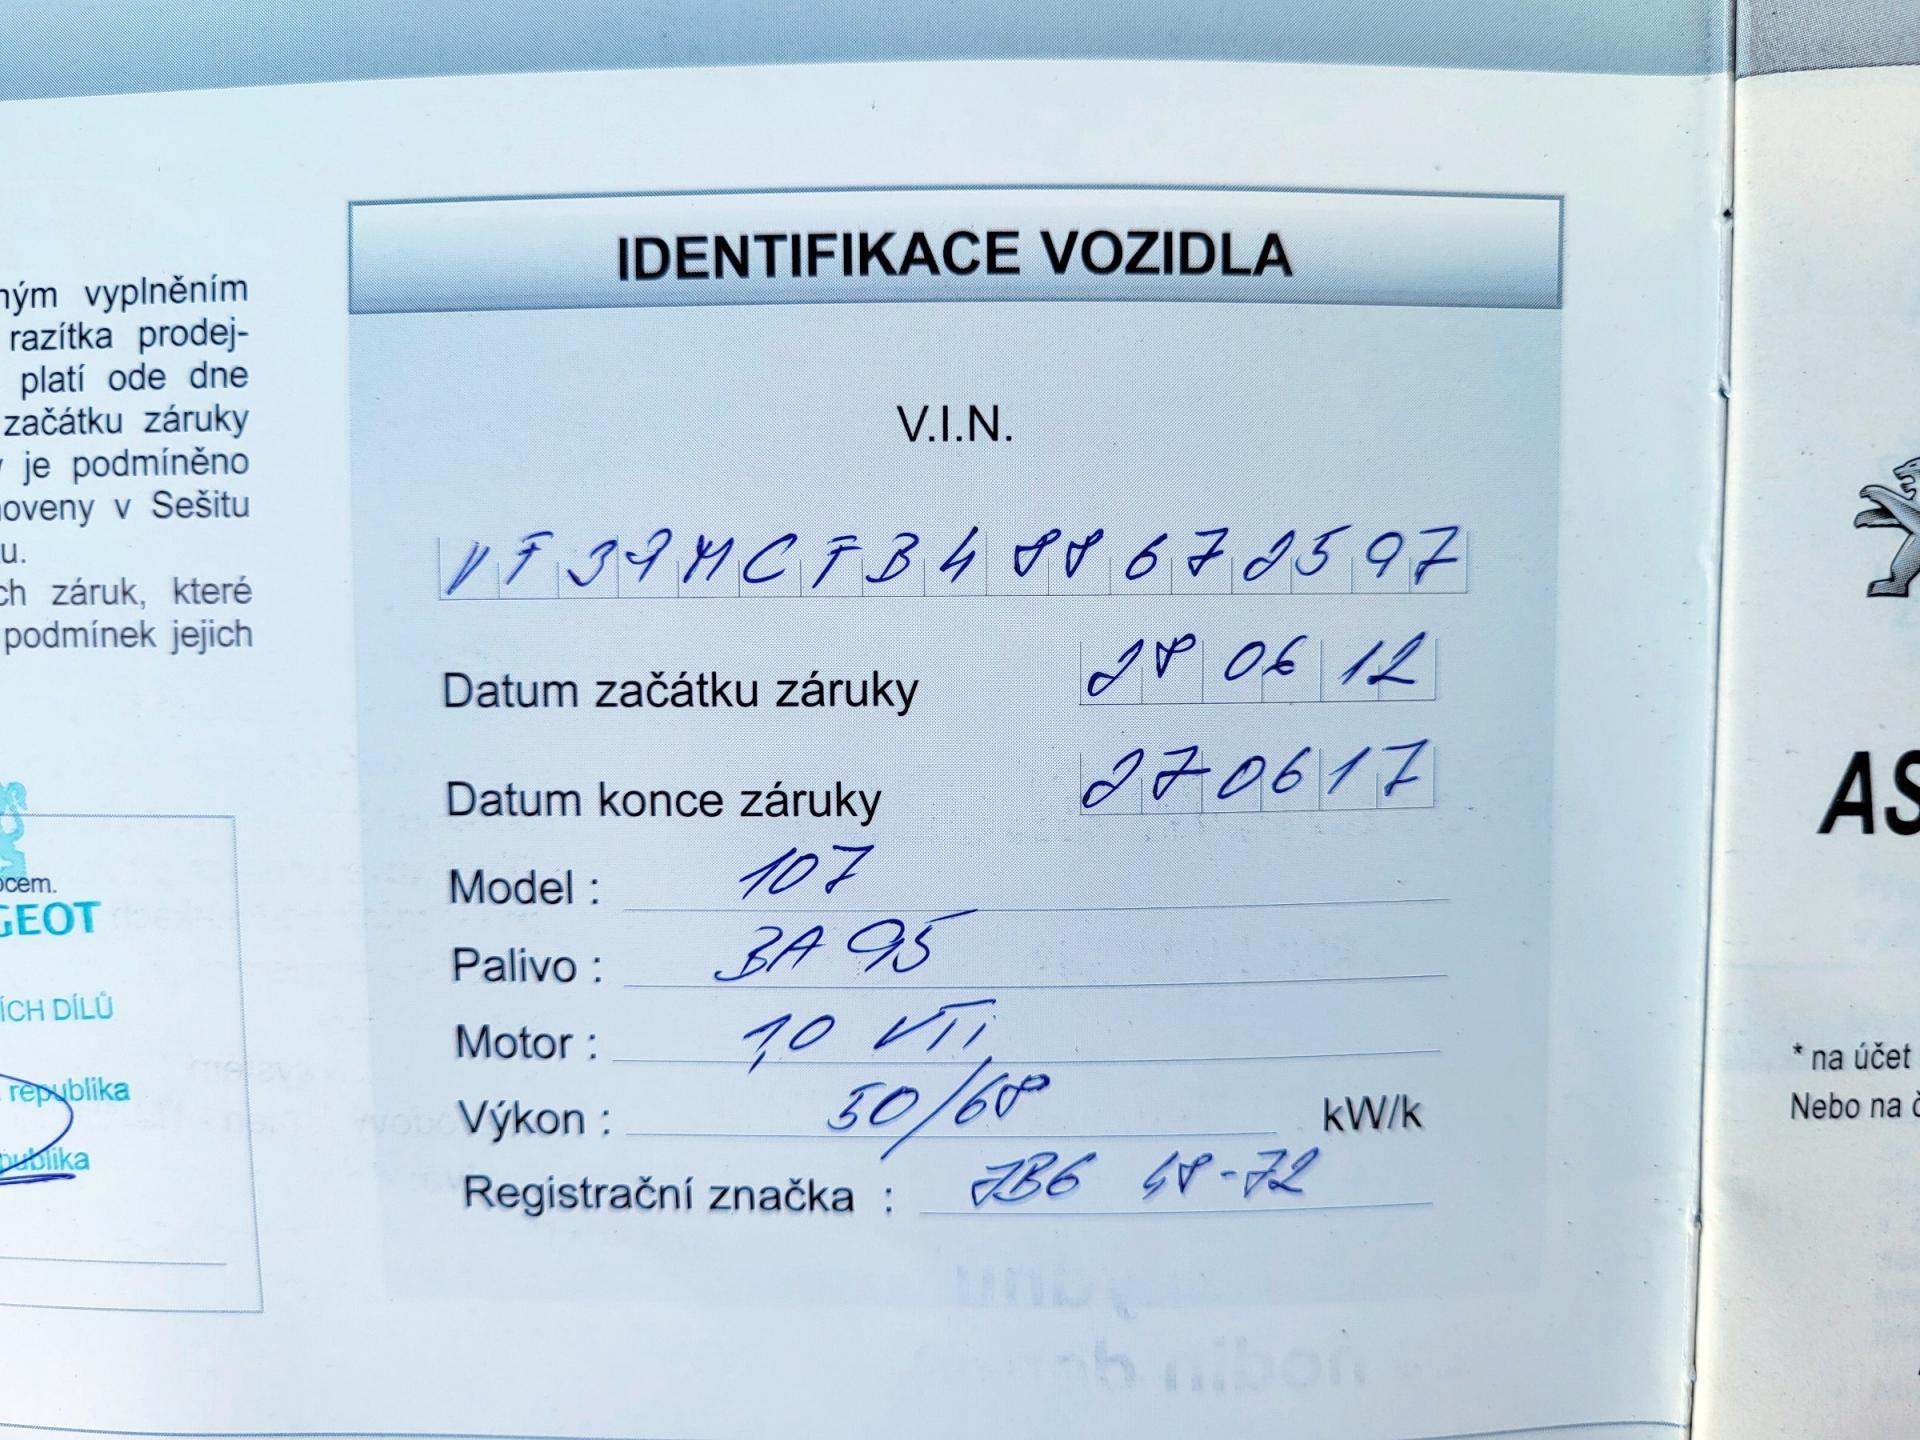 vyplněním
razítka prodej-
platí ode dne
začátku záruky
je podmíněno
v Sešitu
záruk, které
podmínek jejich
DÍLŮ
republika
IDENTIFIKACE VOZIDLA
V.I.N.
V F 3 P M C F B 4 8 8 6 7 2 5 9 7
Datum začátku záruky 28 06 12
Datum konce záruky 27 06 17
Model : 107
Palivo : BA 95
Motor : 1,0 VTi
Výkon : 50/68 kW/k
Registrační značka : 7B6 48-72
* na účet
Nebo na